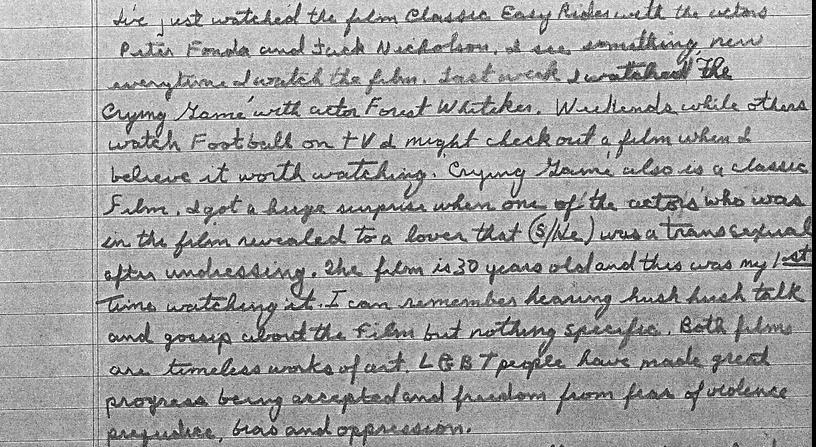 I've just watched the film Classic Easy Rider with the actors
Peter Fonda and Jack Nicholson. I see something new
everytime I watch the film. Last week I watched 'The
Crying Game' with actor Forest Whitaker. Weekends while others
watch Football on TV I might check out a film when I
believe it worth watching. 'Crying Game' also is a classic
Film. I got a huge surprise when one of the actors who was
in the film revealed to a lover that (s/he) was a transsexual
after undressing. The film is 30 years old and this was my 1st
time watching it. I can remember hearing hush hush talk
and gossip about the Film but nothing specific. Both films
are timeless works of art. LGBT people have made great
progress being accepted and freedom from fear of violence
prejudice, bias and oppression.